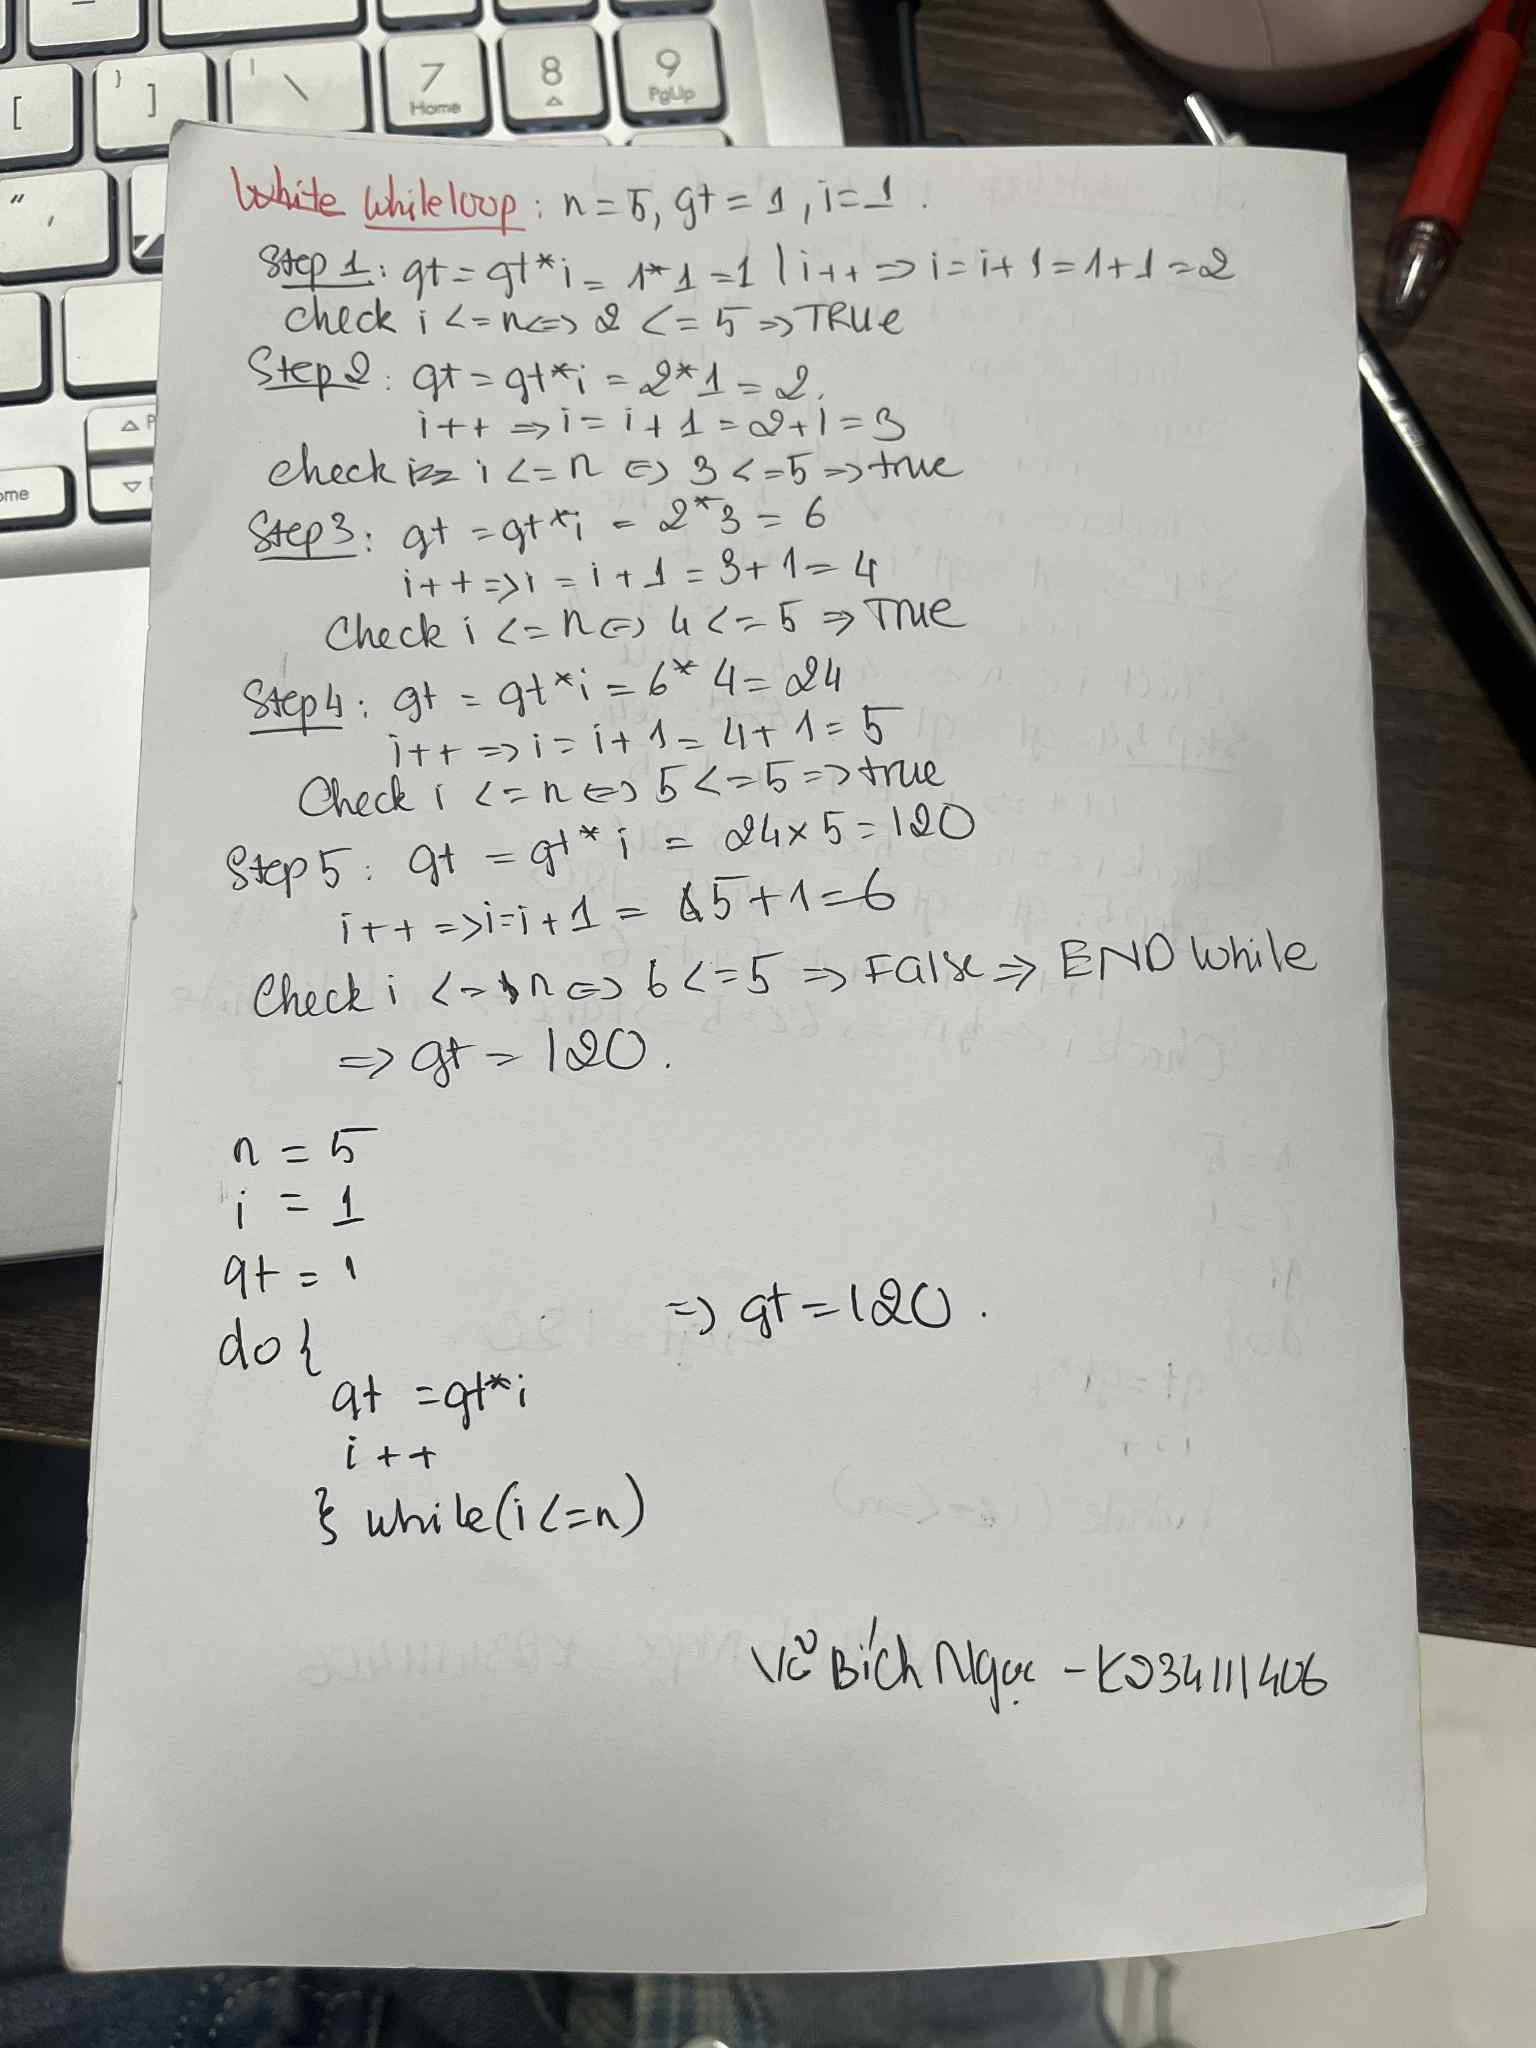 [
}
]
|
\
7
Home
8
9
PgUp
"
,
ome
White While loop : n = 5, gt = 1, i = 1 .
Step 1 : gt = gt * i = 1 * 1 = 1 | i++ => i = i + 1 = 1 + 1 = 2
check i <= n <=> 2 <= 5 => TRUE
Step 2 : gt = gt * i = 2 * 1 = 2.
i++ => i = i + 1 = 2 + 1 = 3
check i <= n <=> 3 <= 5 => true
Step 3 : gt = gt * i = 2 * 3 = 6
i++ => i = i + 1 = 3 + 1 = 4
Check i <= n <=> 4 <= 5 => True
Step 4 : gt = gt * i = 6 * 4 = 24
i++ => i = i + 1 = 4 + 1 = 5
Check i <= n <=> 5 <= 5 => true
Step 5 : gt = gt * i = 24 x 5 = 120
i++ => i = i + 1 = 5 + 1 = 6
Check i <= n <=> 6 <= 5 => False => END While
=> gt = 120.
n = 5
i = 1
gt = 1
do {
=> gt = 120 .
gt = gt * i
i ++
} while (i <= n)
Vũ Bích Ngọc - K234111406